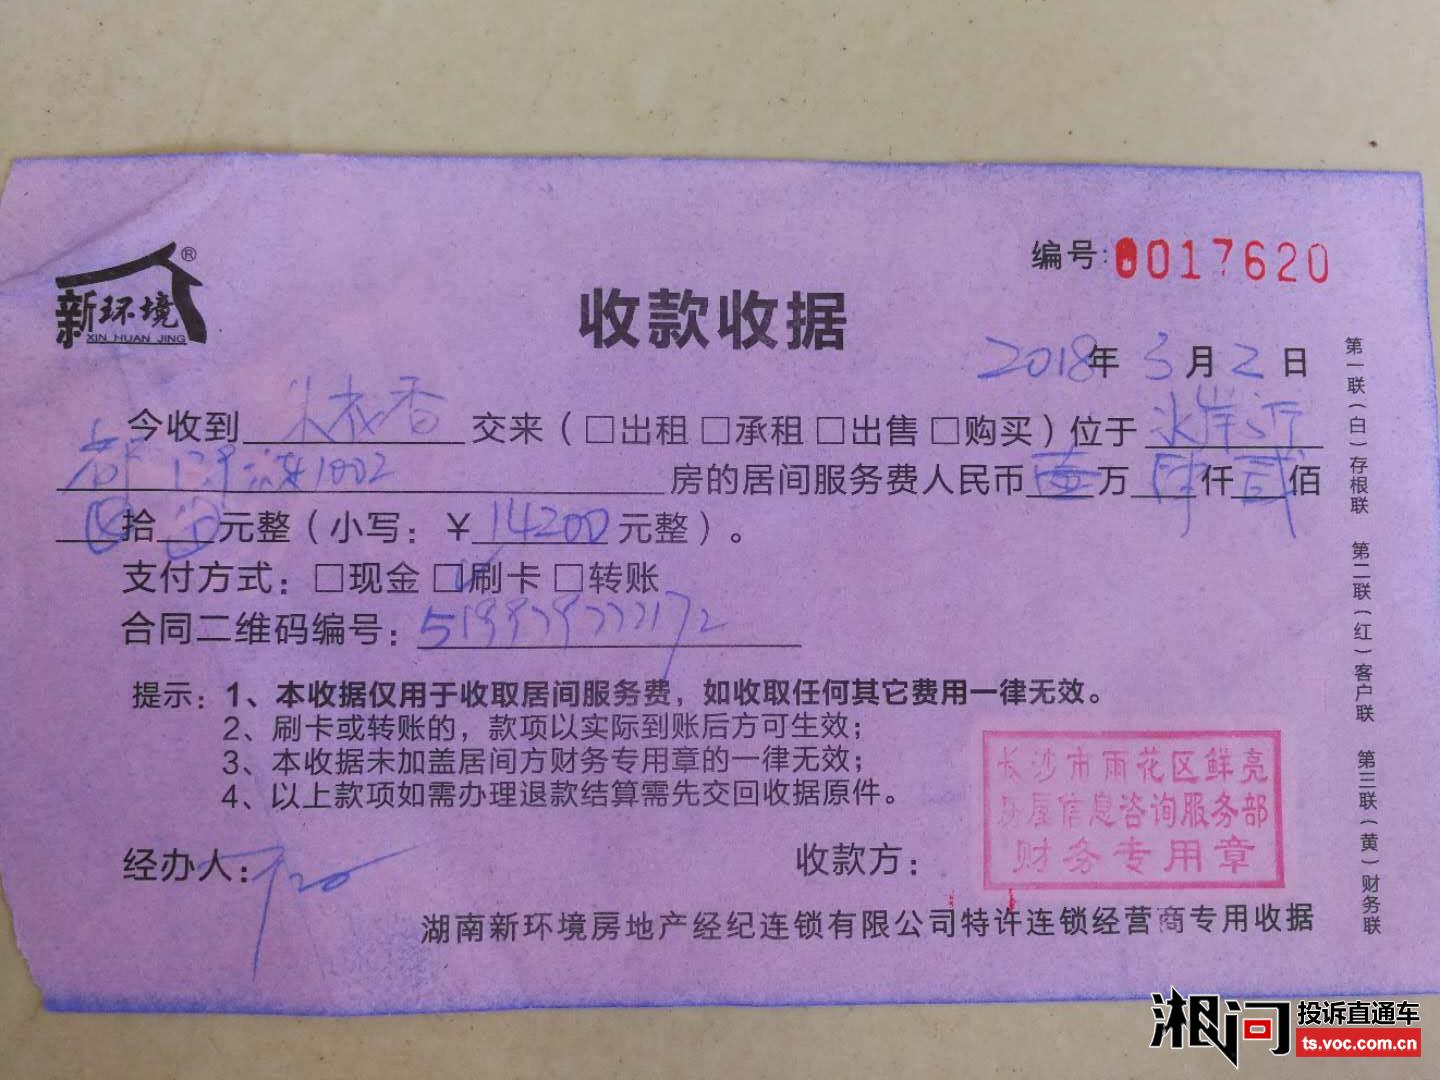 新环境®
XIN HUAN JING
编号:0017620
收款收据
2018年3月2日
今收到 香 交来（□出租 □承租 □出售 □购买）位于 水岸
1002 房的居间服务费人民币壹万 仟贰佰
拾 元整（小写：¥14200元整）。
支付方式：□现金 □刷卡 □转账
合同二维码编号：
提示：1、本收据仅用于收取居间服务费，如收取任何其它费用一律无效。
2、刷卡或转账的，款项以实际到账后方可生效；
3、本收据未加盖居间方财务专用章的一律无效；
4、以上款项如需办理退款结算需先交回收据原件。
经办人：
收款方：
长沙市雨花区鲜亮
房屋信息咨询服务部
财务专用章
湖南新环境房地产经纪连锁有限公司特许连锁经营商专用收据
第一联（白）存根联 第二联（红）客户联 第三联（黄）财务联
湘问 投诉直通车
ts.voc.com.cn